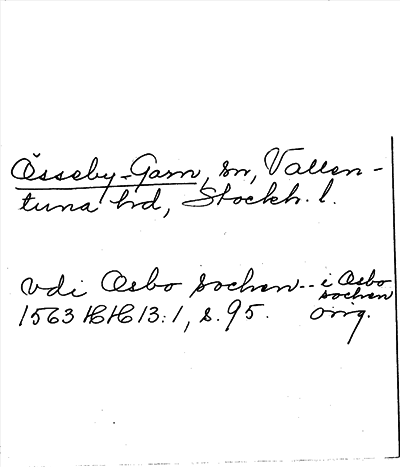 Össeby-Garn, sn, Vallen-
tuna hd, Stockh. l.
vdi Osbo sochen -- i Osbo
sochen
1563 HH 13:1, s. 95. orig.